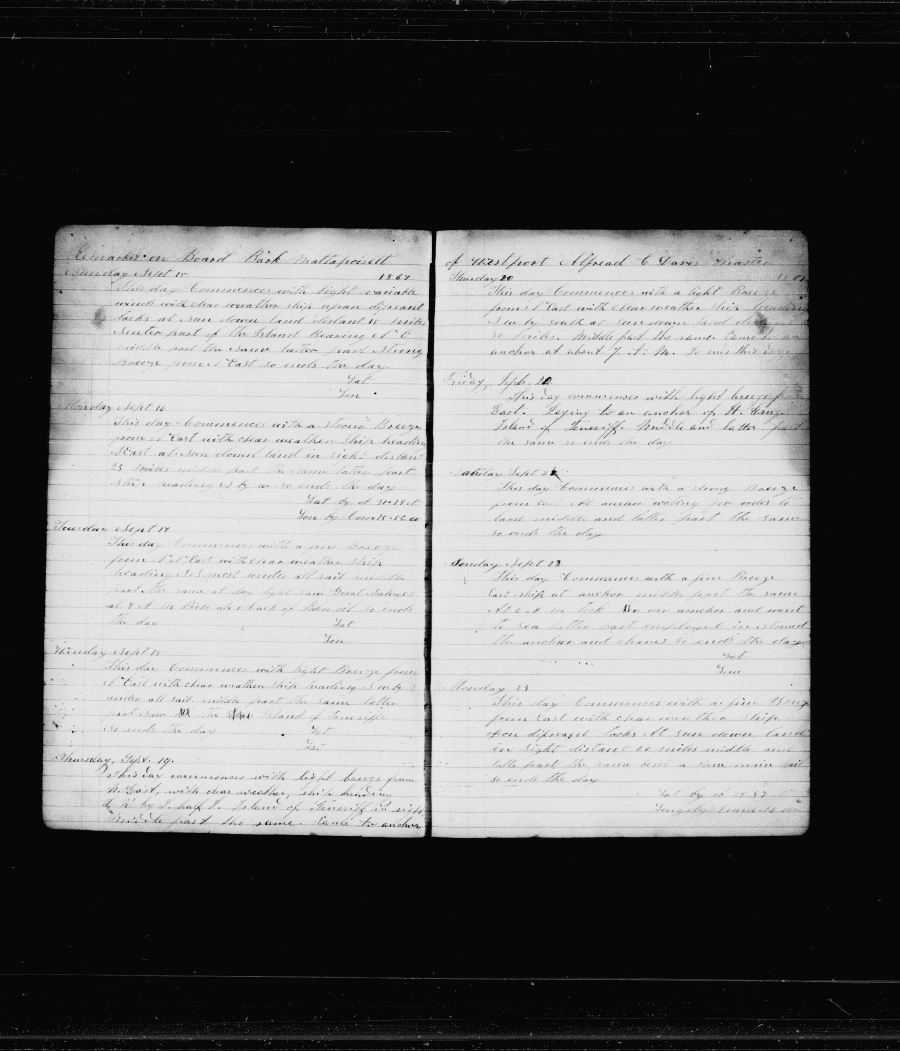 Remarks on Board Bark Mattapoisett
Sunday Sept 15 1867
This day Commences with light variable
winds with clear weather ship upon diferant
tacks at Sun down land distant 15 miles
Senter part of the Island Bearing N E
middle part the same latter part Strong
Breeze from N East so ends the day
Lat
Lon
Monday Sept 16
This day Commences with a strong Breeze
from N East with clear weather Ship heading
S East at Sun down land in sight distant
25 miles middle part the same latter part
Ship heading S by so ends the day
Lat by
Lon by
Tuesday Sept 17
This day Commences with a fine Breeze
from N East with clear weather Ship
heading west under all sail middle
part the same at day light saw Great
at 9 A M so ends
the day Lat
Lon
Wensday Sept 18
This day Commences with light Breeze from
N East with clear weather Ship heading S
under all sail middle part the same latter
part saw the Island of Teneriffe
So ends the day Lat
Lat
Thursday, Sept. 19.
This day commences with light breeze from
N. East, with clear weather, ship heading
by S. half Island of Teneriff in sight
Middle part the same. Came to anchor
of Westport Alfread C Davis Master
Thursday 20
This day Commences with a light Breeze
from East with clear weather Ship heading
S by South at Sun down land
miles. Middle part the same. Came to an
anchor at about 7. A. M. So ends this day.
Friday, Sept. 20
This day commences with light breeze from
East. Laying to an anchor of St. Cruz
Island of Teneriff. Middle and latter part
the same so ends the day
Saturday Sept 21
This day Commences with a strong Breeze
from East At anchor waiting for order to
land middle and latter part the same
so ends the day
Sonday Sept 22
This day Commences with a fine Breeze
East ship at anchor middle part the same
At A M took our anchor and went
to sea latter part employed in stowed
the anchor and chaines so ends the day
Lat
Lon
Monday 23
This day Commences with a fine Breeze
from East with clear weather Ship
upon diferant tacks At Sun down land
in Sight distant miles middle and
latte part the same bent a new main sail
so ends the day
Lat by
Longe by